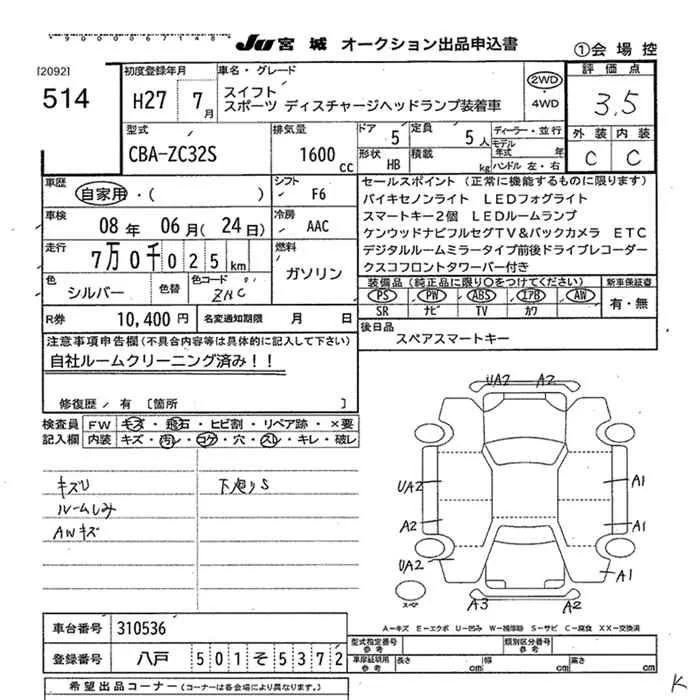 Ju 宮城 オークション出品申込書
①会場控
[2092]
514
初度登録年月
H27 7月
車名・グレード
スイフト
スポーツ ディスチャージヘッドランプ装着車
2WD
・4WD
評価点
3.5
外装 内装
C C
型式
CBA-ZC32S
排気量
1600cc
ドア 5
定員 5人
ディーラー・並行
モデル年式 年
形状 HB
積載 kg
ハンドル 左・右
車歴 自家用・( )
シフト F6
車検 08年 06月(24日)
冷房 AAC
走行 7万0千025km
燃料 ガソリン
色 シルバー 色替 色コード ZNC
R券 10,400円 名変通知期限 月 日
セールスポイント (正常に機能するものに限ります)
バイキセノンライト LEDフォグライト
スマートキー2個 LEDルームランプ
ケンウッドナビフルセグTV&バックカメラ ETC
デジタルルームミラータイプ前後ドライブレコーダー
クスコフロントタワーバー付き
装備品(純正品に限り○をつけてください) 新車保証書
PS PW ABS エアB AW 有・無
SR ナビ TV カワ
後日品
スペアスマートキー
注意事項申告欄(不具合内容等は具体的に記入して下さい)
自社ルームクリーニング済み!!
修復歴/有 [箇所 ]
検査員 FW キズ・飛石・ヒビ割・リペア跡・×要
記入欄 内装 キズ・汚レ・コゲ・穴・スレ・キレ・破レ
キズU 下廻りS
ルームしみ
AWキズ
UA2 A2
UA2 A1
A2 A1
UA2 A1
スペア A3 A2
A-キズ E-エクボ U-凹み W-補修跡 S-サビ C-腐食 XX-交換済
車台番号 310536
型式指定番号 参考 類別区分番号 参考
登録番号 八戸 501そ5372
車庫証明用参考 長さ cm 幅 cm 高さ cm
希望出品コーナー(コーナーは各会場により異なります。)
K